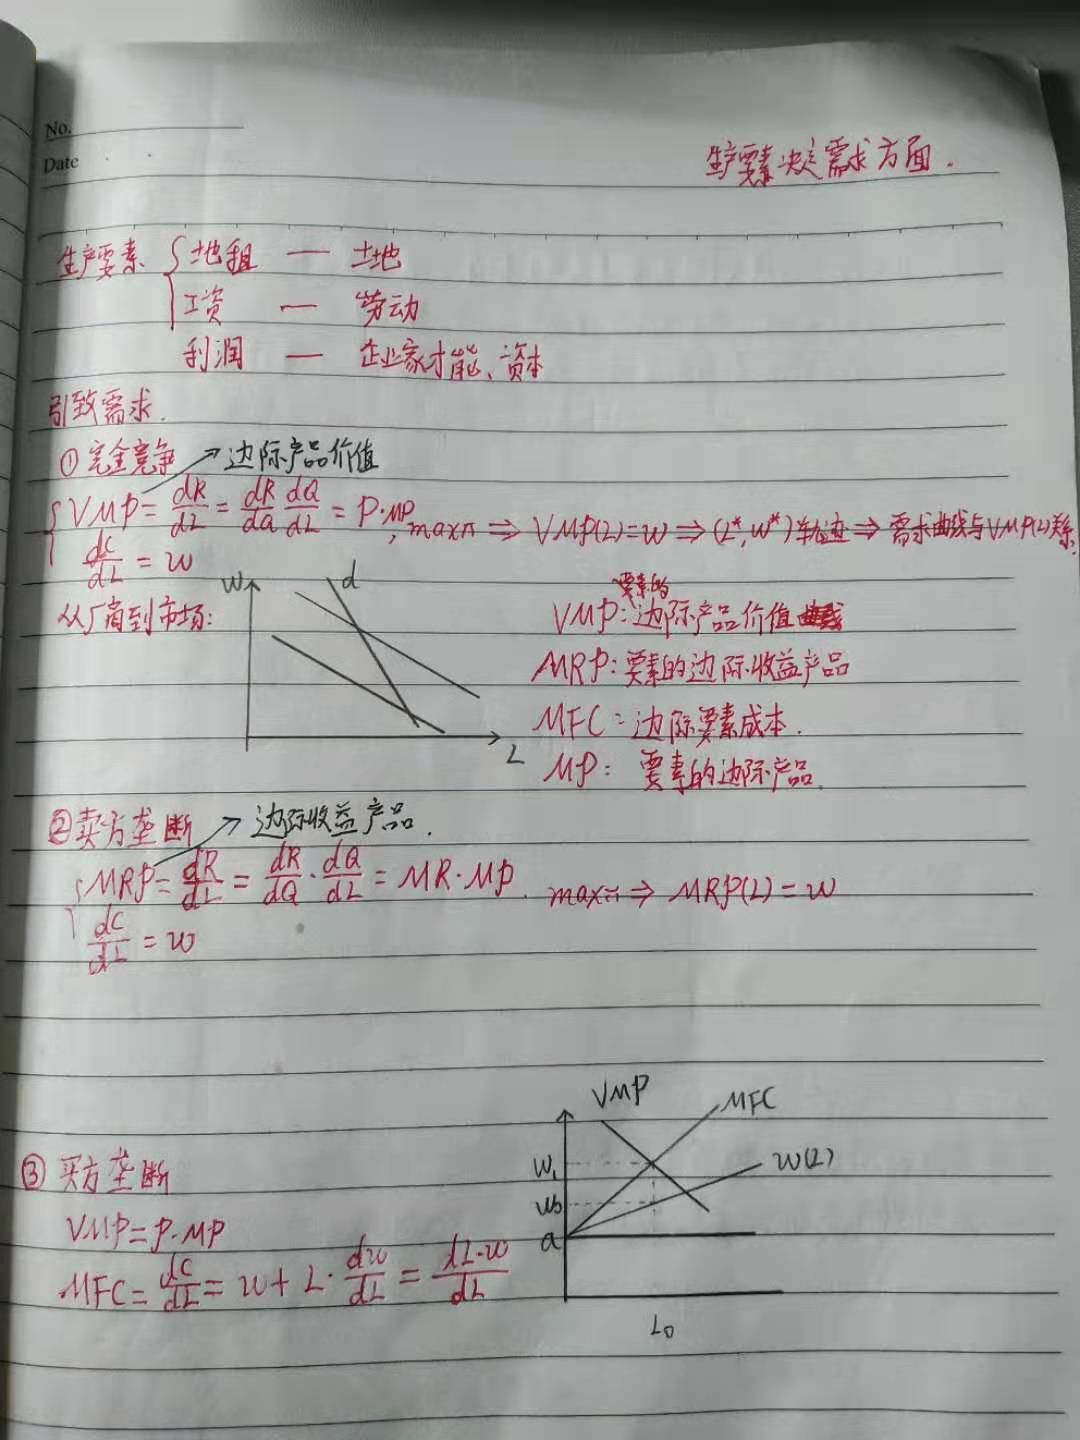 No.
Date
生产要素决定需求方面.
生产要素 { 地租 — 土地
工资 — 劳动
利润 — 企业家才能、资本
引致需求.
① 完全竞争 → 边际产品价值
VMP = dR/dL = dR/dQ dQ/dL = P·MP, maxπ ⇒ VMP(L)=w ⇒ (L*, w*)轨迹 ⇒ 需求曲线与VMP(L)关系
dC/dL = w
从厂商到市场:
W
d
L
要素的
VMP: 边际产品价值
MRP: 要素的边际收益产品
MFC: 边际要素成本.
MP: 要素的边际产品.
② 卖方垄断 → 边际收益产品.
MRP = dR/dL = dR/dQ · dQ/dL = MR·MP. maxπ ⇒ MRP(L) = w
dC/dL = w
VMP
MFC
W(L)
W₁
W₀
a
L₀
③ 买方垄断
VMP = P·MP
MFC = dC/dL = w + L· dw/dL = dL·w/dL